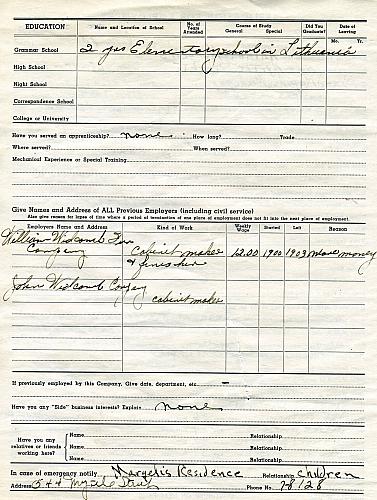 EDUCATION Name and Location of School No. of Years Attended Course of Study General Special Did You Graduate? Date of Leaving Mo. Yr.
Grammar School 2 yrs Elementary school in Lithuania
High School
Night School
Correspondence School
College or University
Have you served an apprenticeship? none How long? Trade
Where served? When served?
Mechanical Experience or Special Training
Give Names and Address of ALL Previous Employers (including civil service)
Also give reason for lapse of time where a period of termination of one place of employment does not fit into the next place of employment.
Employers Name and Address Kind of Work Weekly Wage Started Left Reason
William Widcomb Fur
Company cabinet maker 12.00 1900 1903 more money
& finisher
John Widcomb Company
cabinet maker
If previously employed by this Company, Give date, department, etc. –
Have you any "Side" business interests? Explain none
Have you any relatives or friends working here?
Name Relationship
Name Relationship
Name Relationship
In case of emergency notify Margelis Residence Relationship children
Address 544 Phone No. 78128